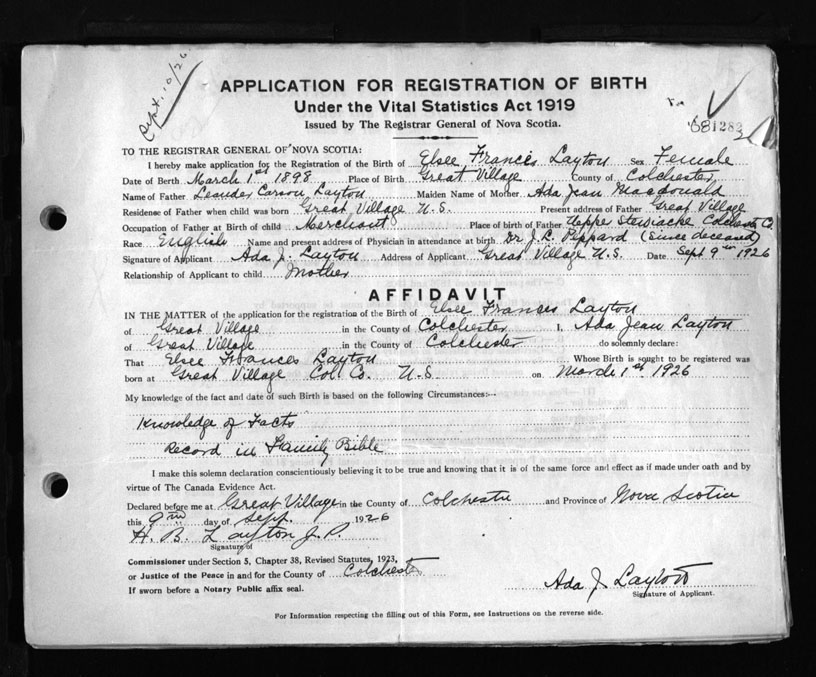 Sept. 10/26
APPLICATION FOR REGISTRATION OF BIRTH
Under the Vital Statistics Act 1919
Issued by The Registrar General of Nova Scotia.
681282
TO THE REGISTRAR GENERAL OF NOVA SCOTIA:
I hereby make application for the Registration of the Birth of Elsee Frances Layton Sex Female
Date of Birth March 1st 1898 Place of Birth Great Village County of Colchester
Name of Father Leander Carson Layton Maiden Name of Mother Ada Jean Macdonald
Residense of Father when child was born Great Village N.S. Present address of Father Great Village
Occupation of Father at Birth of child Merchant Place of birth of Father Upper Stewiacke Colchester Co.
Race English Name and present address of Physician in attendance at birth Dr J. L. Peppard (Since deceased)
Signature of Applicant Ada J. Layton Address of Applicant Great Village N.S. Date Sept 9th 1926
Relationship of Applicant to child Mother
AFFIDAVIT
IN THE MATTER of the application for the registration of the Birth of Elsee Frances Layton
of Great Village in the County of Colchester I, Ada Jean Layton
of Great Village in the County of Colchester do solemnly declare:
That Elsee Frances Layton Whose Birth is sought to be registered was
born at Great Village Col. Co. N.S. on March 1st 1926
My knowledge of the fact and date of such Birth is based on the following Circumstances:—
Knowledge of Facts
Record in Family Bible
I make this solemn declaration conscientiously believing it to be true and knowing that it is of the same force and effect as if made under oath and by
virtue of The Canada Evidence Act.
Declared before me at Great Village in the County of Colchester and Province of Nova Scotia
this 9th day of Sept. 1926
H. B. Layton J. P.
Signature of
Commissioner under Section 5, Chapter 38, Revised Statutes, 1923,
or Justice of the Peace in and for the County of Colchester
If sworn before a Notary Public affix seal.
Ada J Layton
Signature of Applicant.
For Information respecting the filling out of this Form, see Instructions on the reverse side.